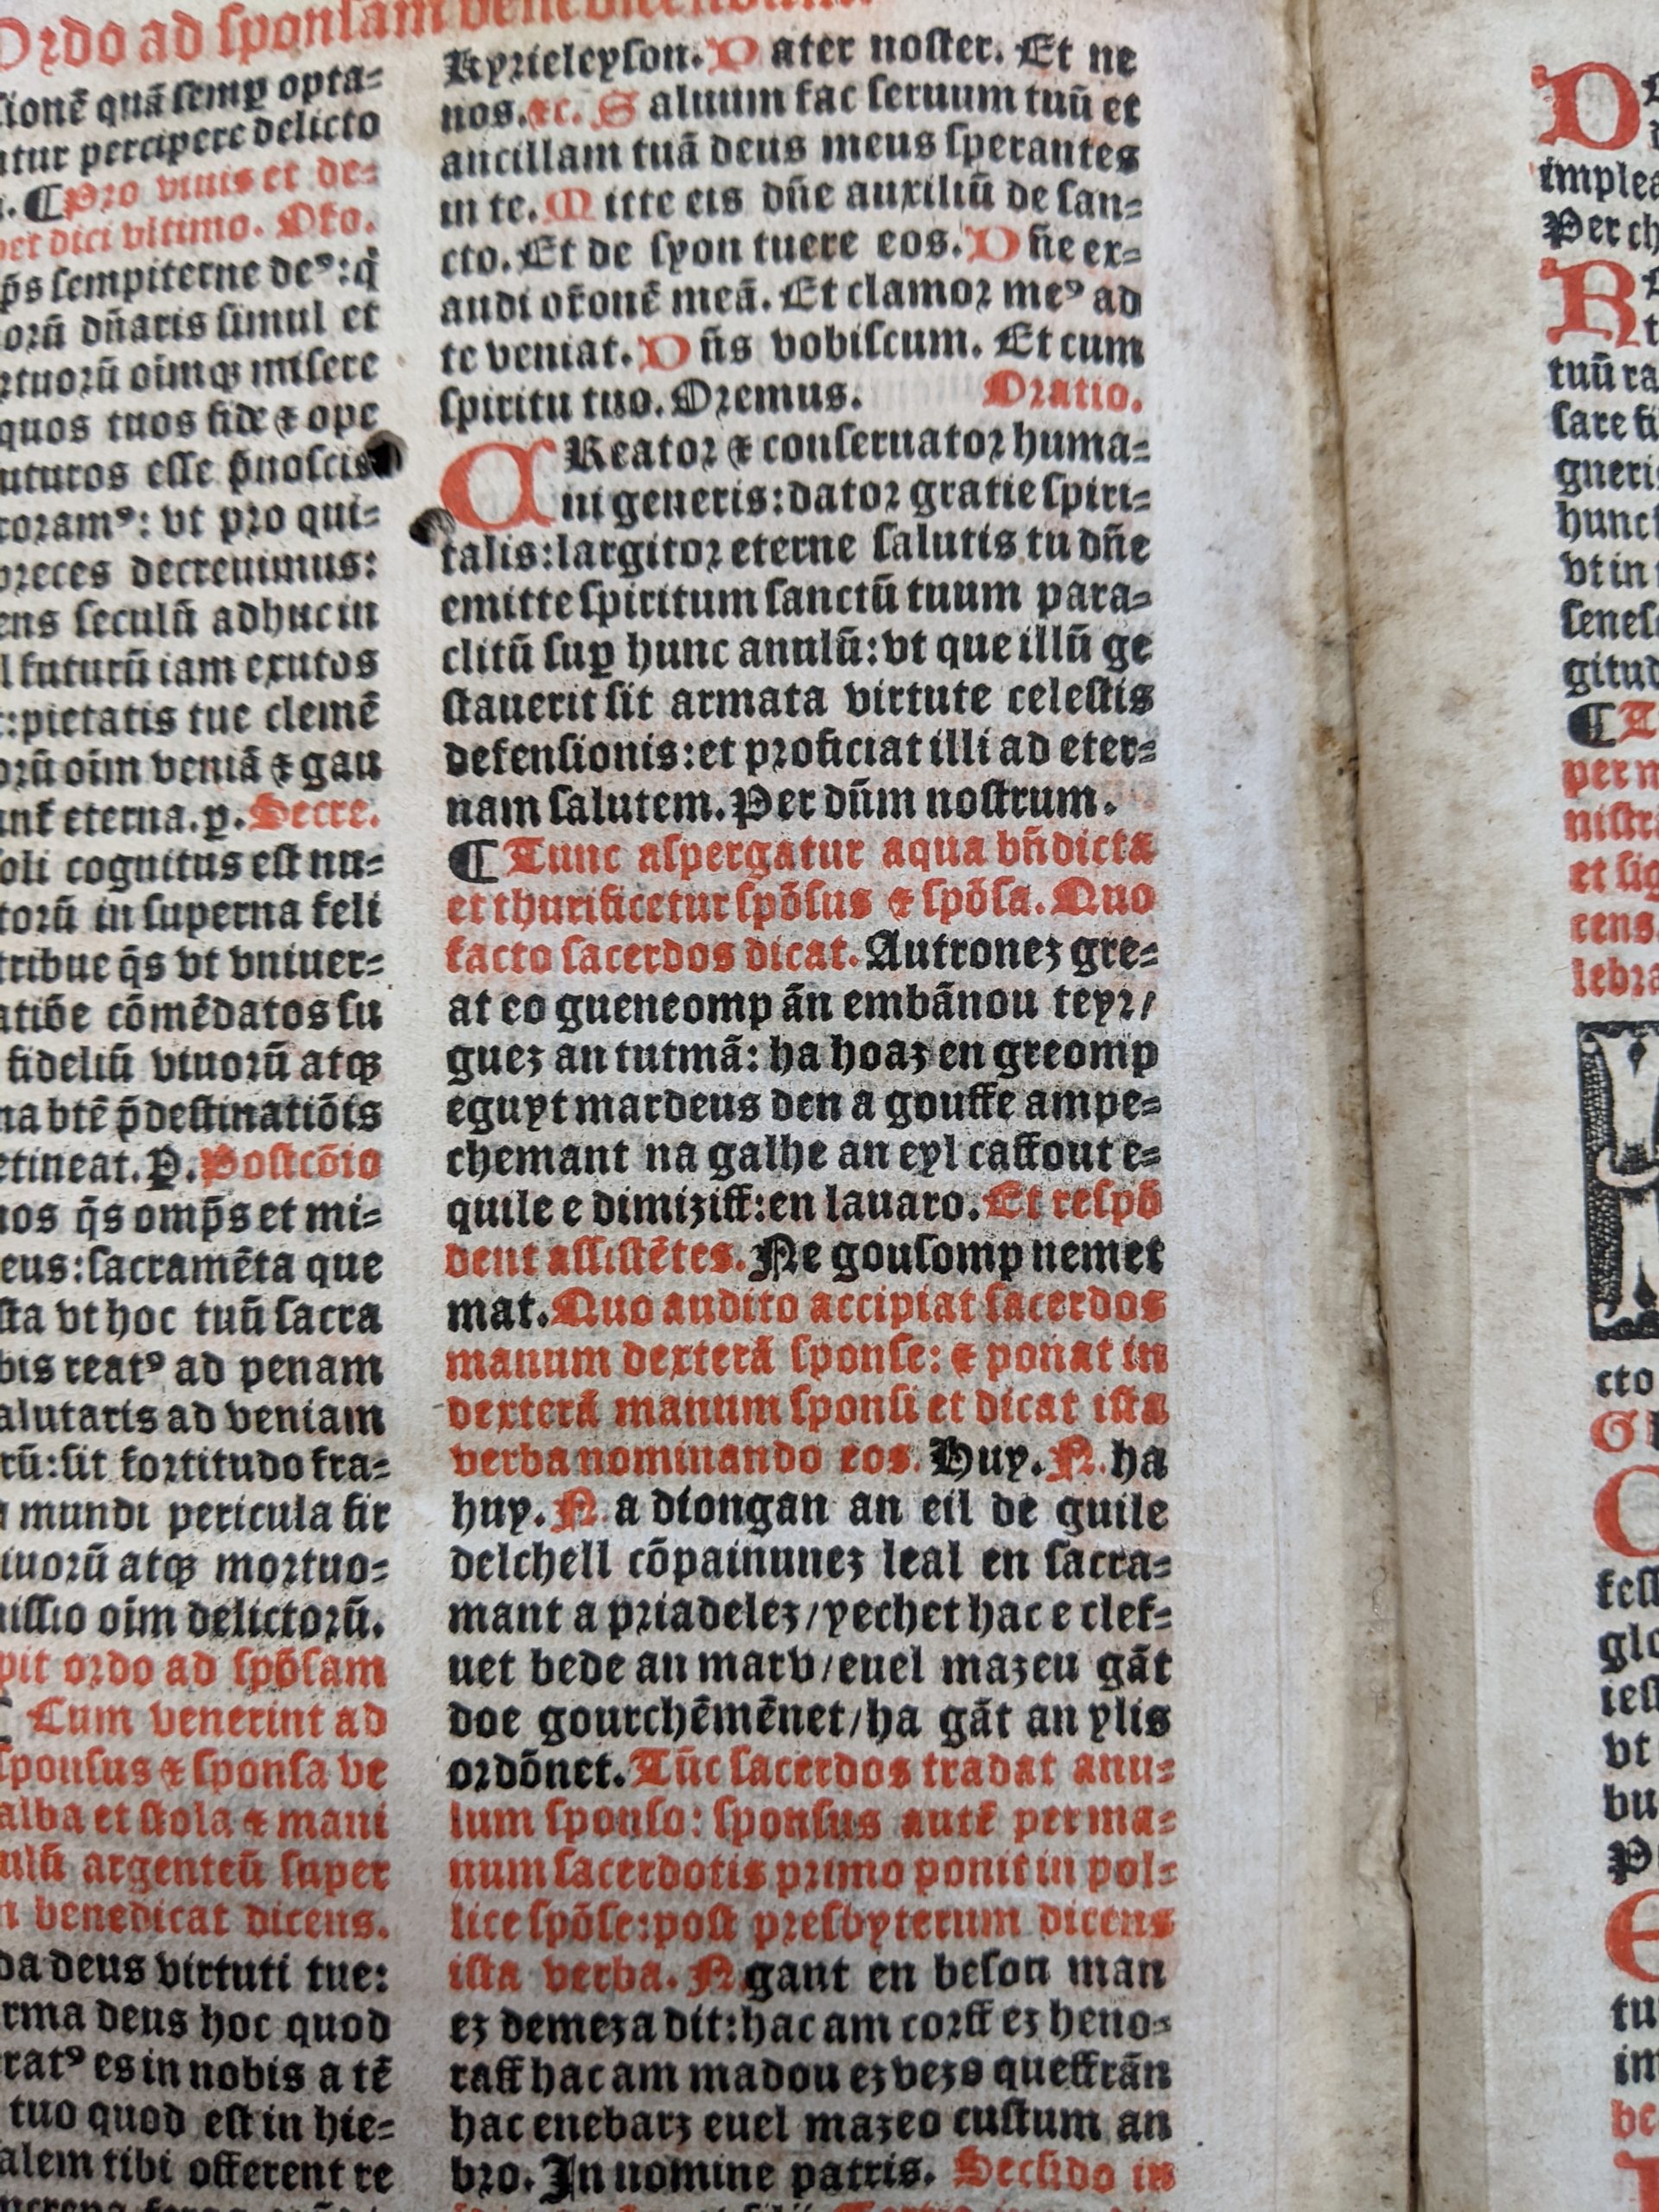 Ordo ad sponsam benedicendam.
sionē quā semꝑ opta-
ntur percipere delicto
¶ Pro viuis et de-
per dici vltimo. Oro.
sempiterne deꝰ: q
orū dñaris simul et
rtuorū oīmqꝫ misere
quos tuos fide ⁊ ope
uturos esse p̄noscis
coramꝰ: vt pro qui-
preces decreuimus:
ens seculū adhuc in
l futurū iam exutos
: pietatis tue clemē
orū oīm veniā ⁊ gau
eterna. ꝑ. Secre.
soli cognitus est nu-
torū in superna feli
tribue q̄s vt vniuer-
cōmēdatos su
fideliū viuorū atqꝫ
btē p̄destinatiōis
etineat. P. Postcōio
nos q̄s omp̄s et mi-
eus: sacramēta que
sta vt hoc tuū sacra
bis reatꝰ ad penam
alutaris ad veniam
rū: sit fortitudo fra-
mundi pericula fir
iuorū atqꝫ mortuo-
missio oīm delictorū.
pit ordo ad spōsam
Cum venerint ad
sponsus ⁊ sponsa ve
alba et stola ⁊ mani
ulū argenteū super
benedicat dicens.
da deus virtuti tue:
rma deus hoc quod
ratꝰ es in nobis a tē
tuo quod est in hie-
alem tibi offerent re
Kyrieleyson. Pater noster. Et ne
nos. ⁊c. Saluum fac seruum tuū et
ancillam tuā deus meus sperantes
in te. Mitte eis dñe auxiliū de san-
cto. Et de syon tuere eos. Dñe ex-
audi orōnē meā. Et clamor meꝰ ad
te veniat. Dñs vobiscum. Et cum
spiritu tuo. Oremus. Oratio.
CReator ⁊ conseruator huma-
ni generis: dator gratie spiri-
talis: largitor eterne salutis tu dñe
emitte spiritum sanctū tuum para-
clitū suꝑ hunc anulū: vt que illū ge
stauerit sit armata virtute celestis
defensionis: et proficiat illi ad eter-
nam salutem. Per dñm nostrum.
¶ Tunc aspergatur aqua bñdicta
et thurificetur spōsus ⁊ spōsa. Quo
facto sacerdos dicat. Autronez gre-
at eo gueneomp ān embānou teyr/
guez an tutmā: ha hoaz en greomp
eguyt mar deus den a gouffe ampe-
chemant na galhe an eyl caffout e-
guile e dimiziff: en lauaro. Et respō
dent assistētes. Ne gousomp nemet
mat. Quo audito accipiat sacerdos
manum dexterā sponse: ⁊ ponat in
dexterā manum sponsi et dicat ista
verba nominando eos. Huy. N. ha
huy. N. a diongan an eil de guile
delchell cōpainunez leal en sacra-
mant a priadelez/yechet hac e clef-
uet bede an marv/euel mazeu gāt
doe gourchēmēnet/ha gāt an ylis
ordōnet. Tūc sacerdos tradat anu-
lum sponso: sponsus autē per ma-
num sacerdotis primo ponit in pol-
lice spōse: post presbyterum dicens
ista verba. N gant en beson man
ez demeza dit: hac am corff ez heno-
raff hac am madou ez vezo queffrān
hac enebarz euel mazeo custum an
bro. In nomine patris. Secūdo in
D
implea
Per ch
R
tuū ra
sare fi
gneris
hunc
vt in
senes
gitud
¶
per m
nistr
et sig
cens.
lebra
cto
fell
glo
vt
bu
P
E
tu
im
be